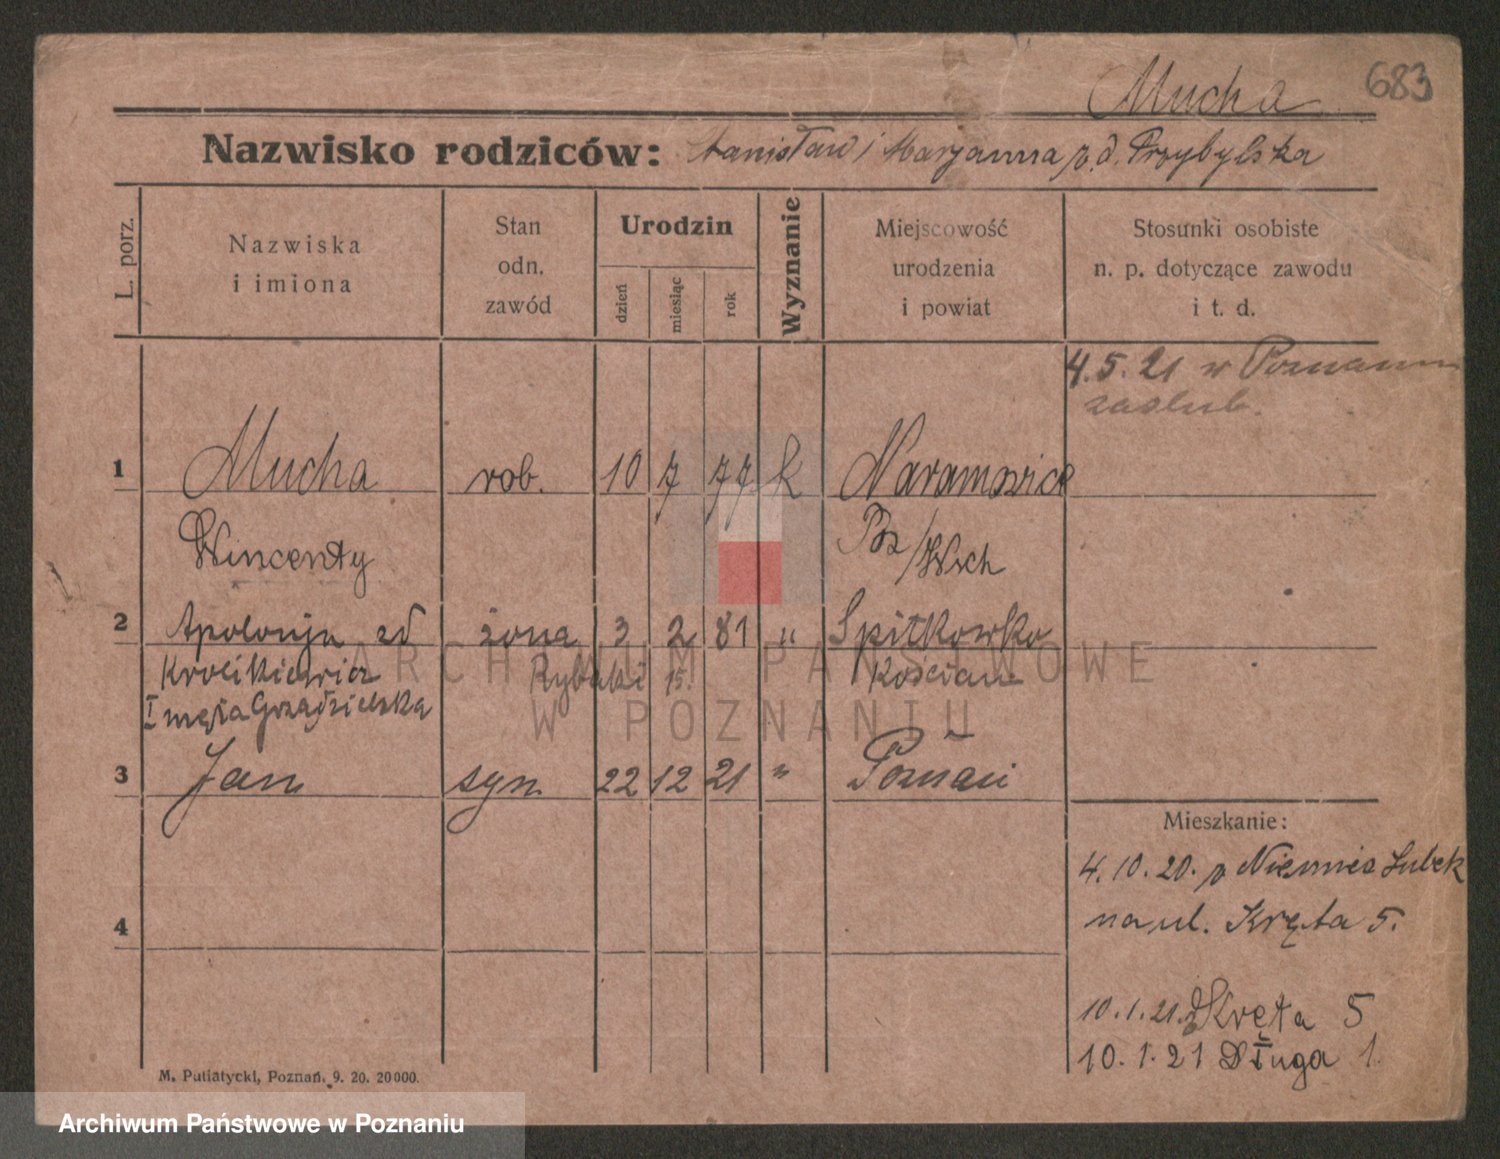 Mucha 683
Nazwisko rodziców: Stanisław i Marjanna z d. Przybylska
L. porz.
Nazwiska
i imiona
Stan
odn.
zawód
Urodzin
dzień
miesiąc
rok
Wyznanie
Miejscowość
urodzenia
i powiat
Stosunki osobiste
n. p. dotyczące zawodu
i t. d.
4.5.21 w Poznaniu
zaślub.
1 Mucha rob. 10 7 77 k Naramowice
Wincenty Poz/Wsch
2 Apolonja zd żona 3 2 81 " Spitkowko
Krolikiewicz Rybaki 15. Kościan
I męża Grządzielska
3 Jan syn 22 12 21 " Poznań
Mieszkanie:
4.10.20. z Niemiec Lubek
na ul. Kręta 5.
4
10.1.21. Kręta 5
10.1.21 Długa 1.
M. Putiatycki, Poznań. 9. 20. 20000.
ARCHIWUM PAŃSTWOWE
W POZNANIU
Archiwum Państwowe w Poznaniu